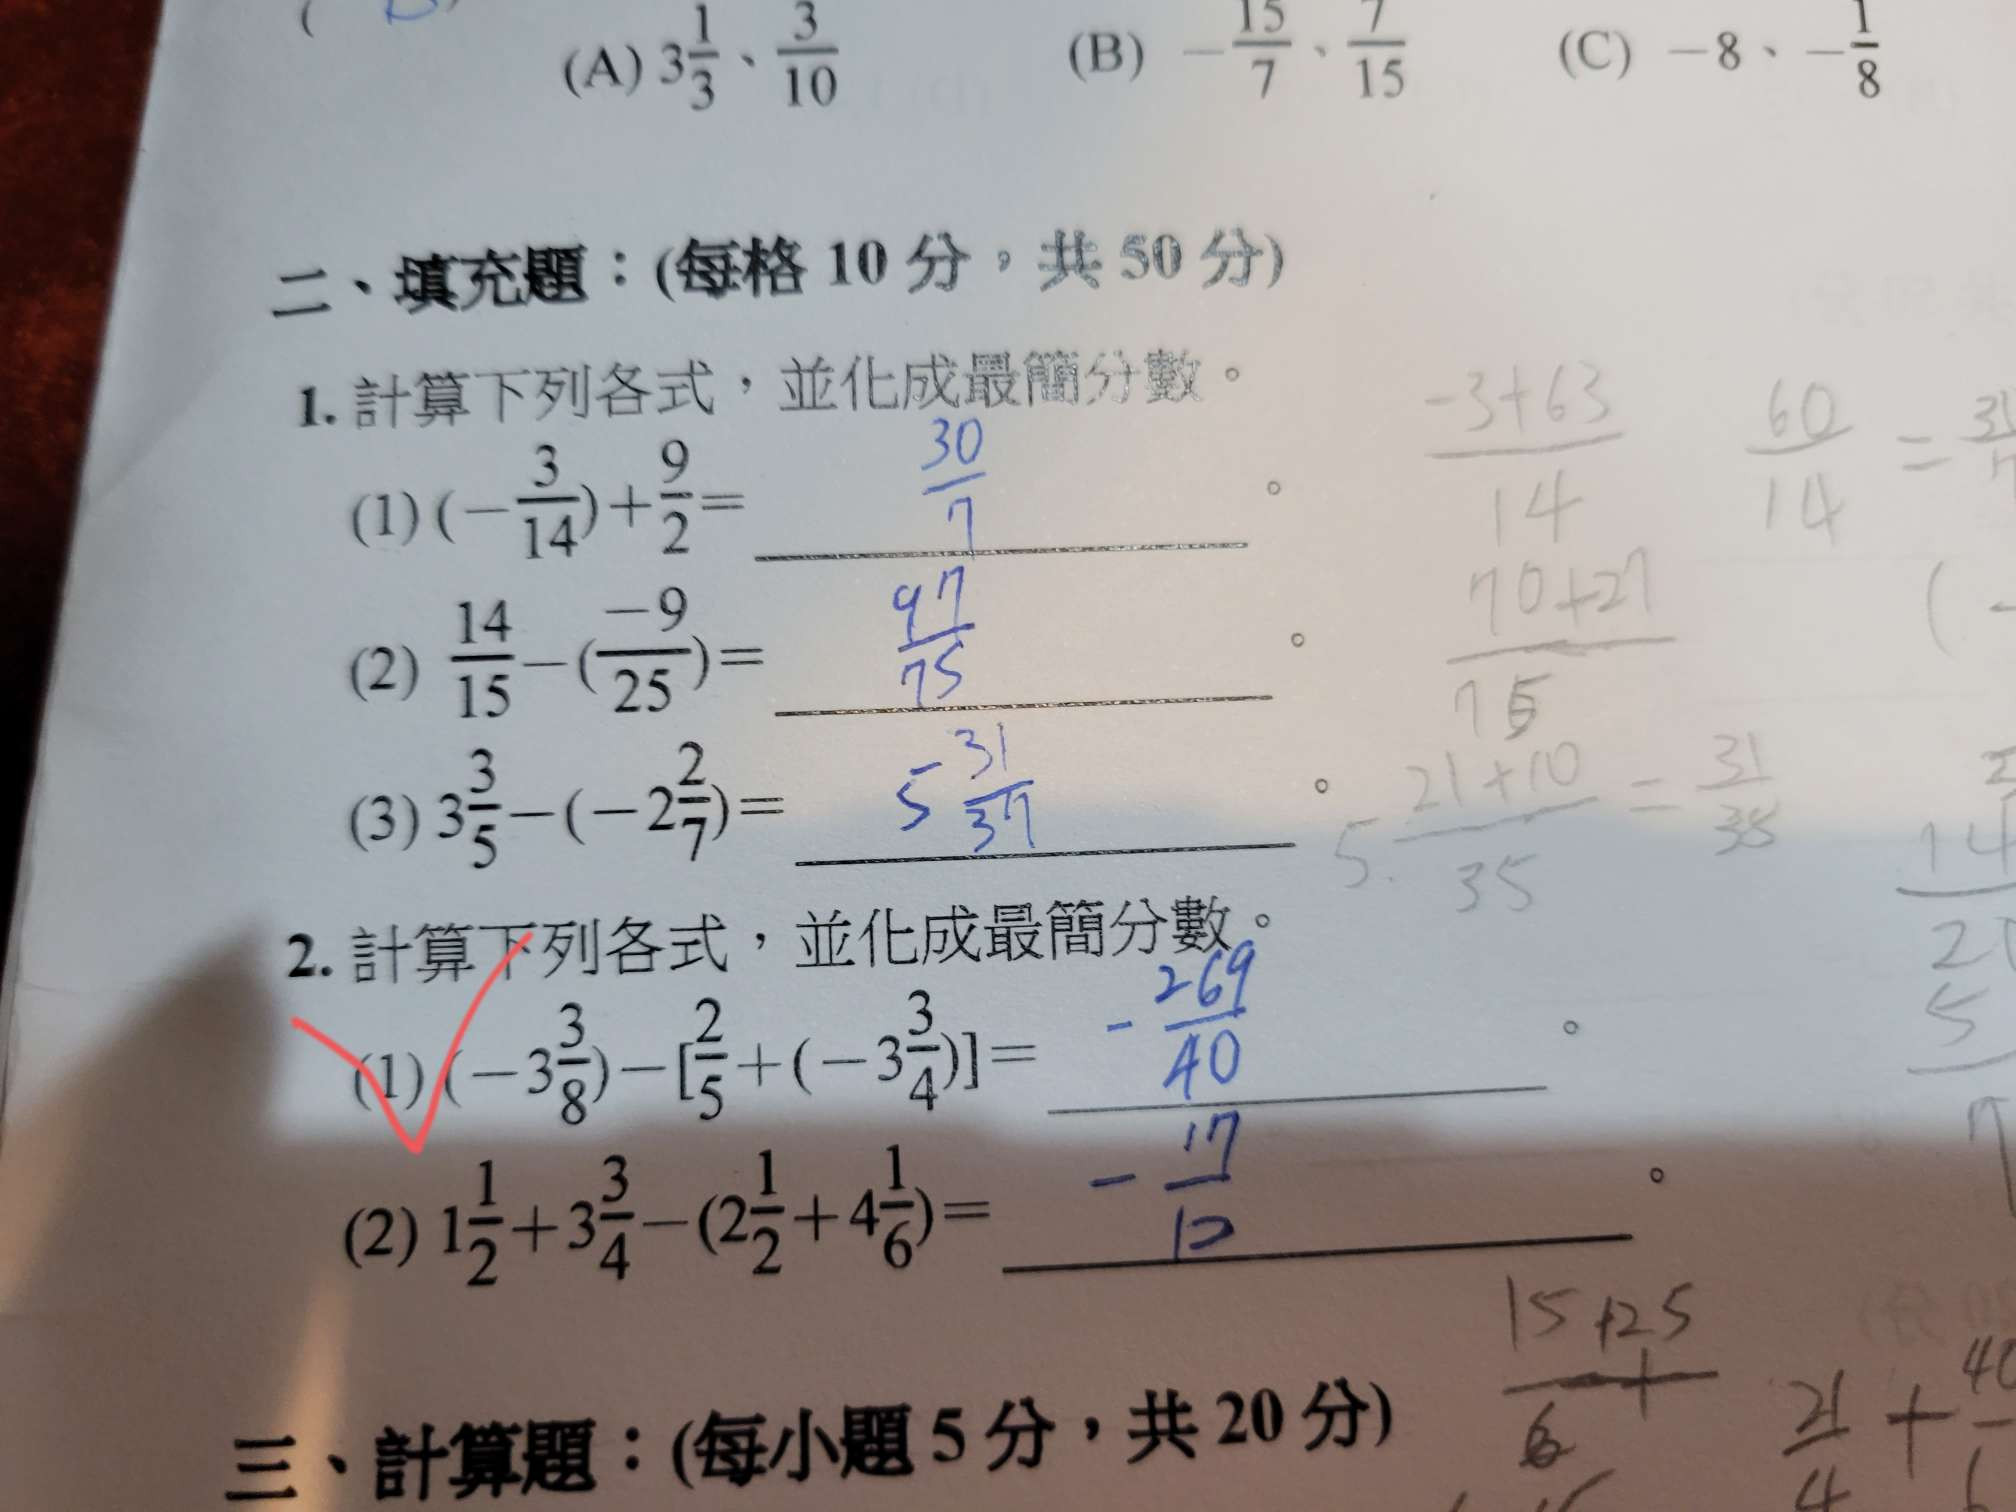 (A) 3 1/3、3/10 (B) －15/7、7/15 (C) －8、－1/8
二、填充題：(每格 10 分，共 50 分)
1. 計算下列各式，並化成最簡分數。
(1) (－3/14)＋9/2＝ 30/7 。
(2) 14/15－(－9/25)＝ 97/75 。
(3) 3 3/5－(－2 2/7)＝ 5 31/37 。
2. 計算下列各式，並化成最簡分數。
(1) (－3 3/8)－[2/5＋(－3 3/4)]＝ －269/40 。
(2) 1 1/2＋3 3/4－(2 1/2＋4 1/6)＝ －17/12 。
三、計算題：(每小題 5 分，共 20 分)
-3+63/14 60/14 =
70+27/75
5 21+10/35 = 31/35
15+25/6
21/4 +